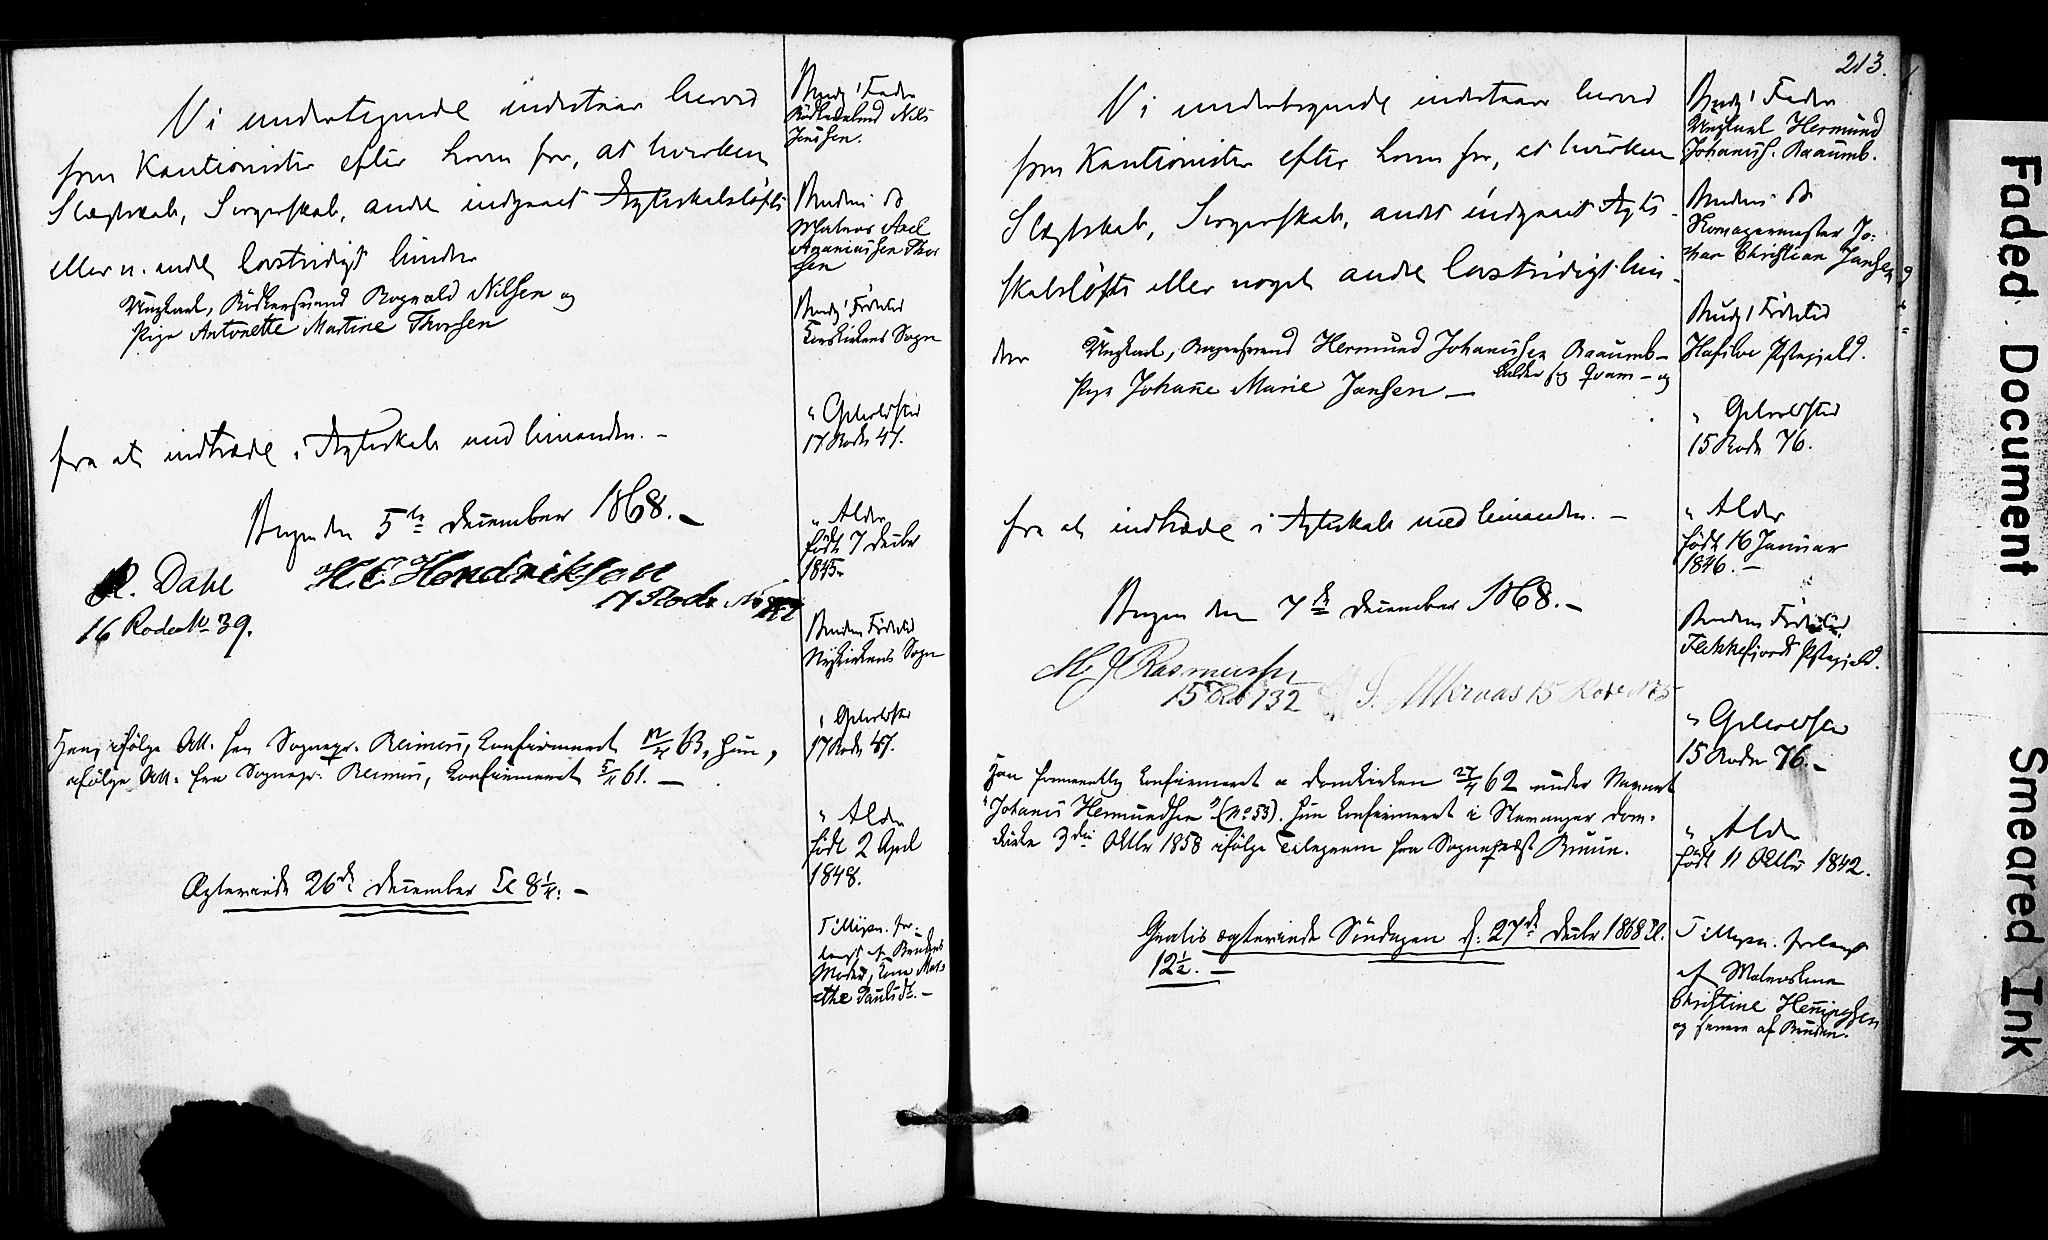 Vi undertegnede indestaar herved
som Kautionister efter Loven for, at hverken
Slægtskab, Svogerskab, andet indgaaet Ægteskabsløfte
eller n. andet lovstridigt hinder
Ungkarl, Bødkersvend Rognald Nilsen og
Pige Antonette Martine Thorsen
for at indtræde i Ægteskab med hinanden. -
Bergen den 5te December 1868. -
R. Dahl
16 Rode No 39.
H. C. Hendriksen
17 Rode No
Han, ifølge Att. fra Sognepr. Reimers, konfirmeret 63, hun,
ifølge Att. fra Sognepr. Reimers, konfirmeret 61. -
Ægteviede 26de December Kl 8 1/4. -
Brudg! Fader
Bødkersvend Nils
Jensen.
Brudens do
Matros Axel
Ananiassen Thor
sen
Brudg! Fødested
Korskirkens Sogn
" Opholdssted
17 Rode 47.
" Alder
født 7 Decbr
1845.
Brudens Fødested
Nykirkens Sogn
" Opholdssted
17 Rode 47.
" Alder
født 2 April
1848.
Tillysn. for-
langt af Brudens
Moder,
Paulsdtr. -
213.
Vi undertegnede indestaar herved
som Kautionister efter Loven for, at hverken
Slægtskab, Svogerskab, andet indgaaet Ægte-
skabsløfte eller noget andet lovstridigt hin-
der
Ungkarl, Bagersvend Hermund Johannesen Baaumb -
kalder sig Qvam - og
Pige Johanne Marie Jansen -
for at indtræde i Ægteskab med hinanden. -
Bergen den 7de December 1868. -
M J Rasmussen
15 Rd 132
15 Rode No 5
Han formentlig konfirmeret i Domkirken 62 under Navnet
"Johannes Hermundsen" (No 53). Hun konfirmeret i Stavanger Dom-
kirke 3die Oktbr 1858 ifølge Telegram fra Sogneprest Bruun.
Gratis ægteviede Søndagen d. 27de Decbr 1868 Kl.
12 1/2. -
Brudg! Fader
Ungkarl Hermund
Johannes. Baaumb.
Brudens do
Skomagermester Jo-
han Christian Jansen
Brudg! Fødested
Hafslo Pstegjeld.
" Opholdssted
15 Rode 76.
" Alder
født 16 Januar
1846. -
Brudens Fødested
Flekkefjords Pstegjeld.
" Opholdssted
15 Rode 76. -
" Alder
født 11 Oktbr 1842.
Tillysn. forlangt
af Matroskone
Christine Henningsen
og senere af Bruden.
Faded Document
Smeared Ink